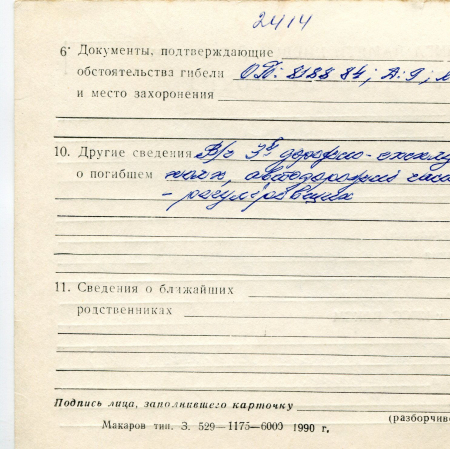 2414
6· Документы, подтверждающие
обстоятельства гибели ОП: 818884; А:9; м
и место захоронения
10. Другие сведения В/ч 3й дорожно-эксплу
о погибшем полк, автодорожный
- регулировщик
11. Сведения о ближайших
родственниках
Подпись лица, заполнившего карточку
(разборчив
Макаров тип. З. 529—1175—6000 1990 г.